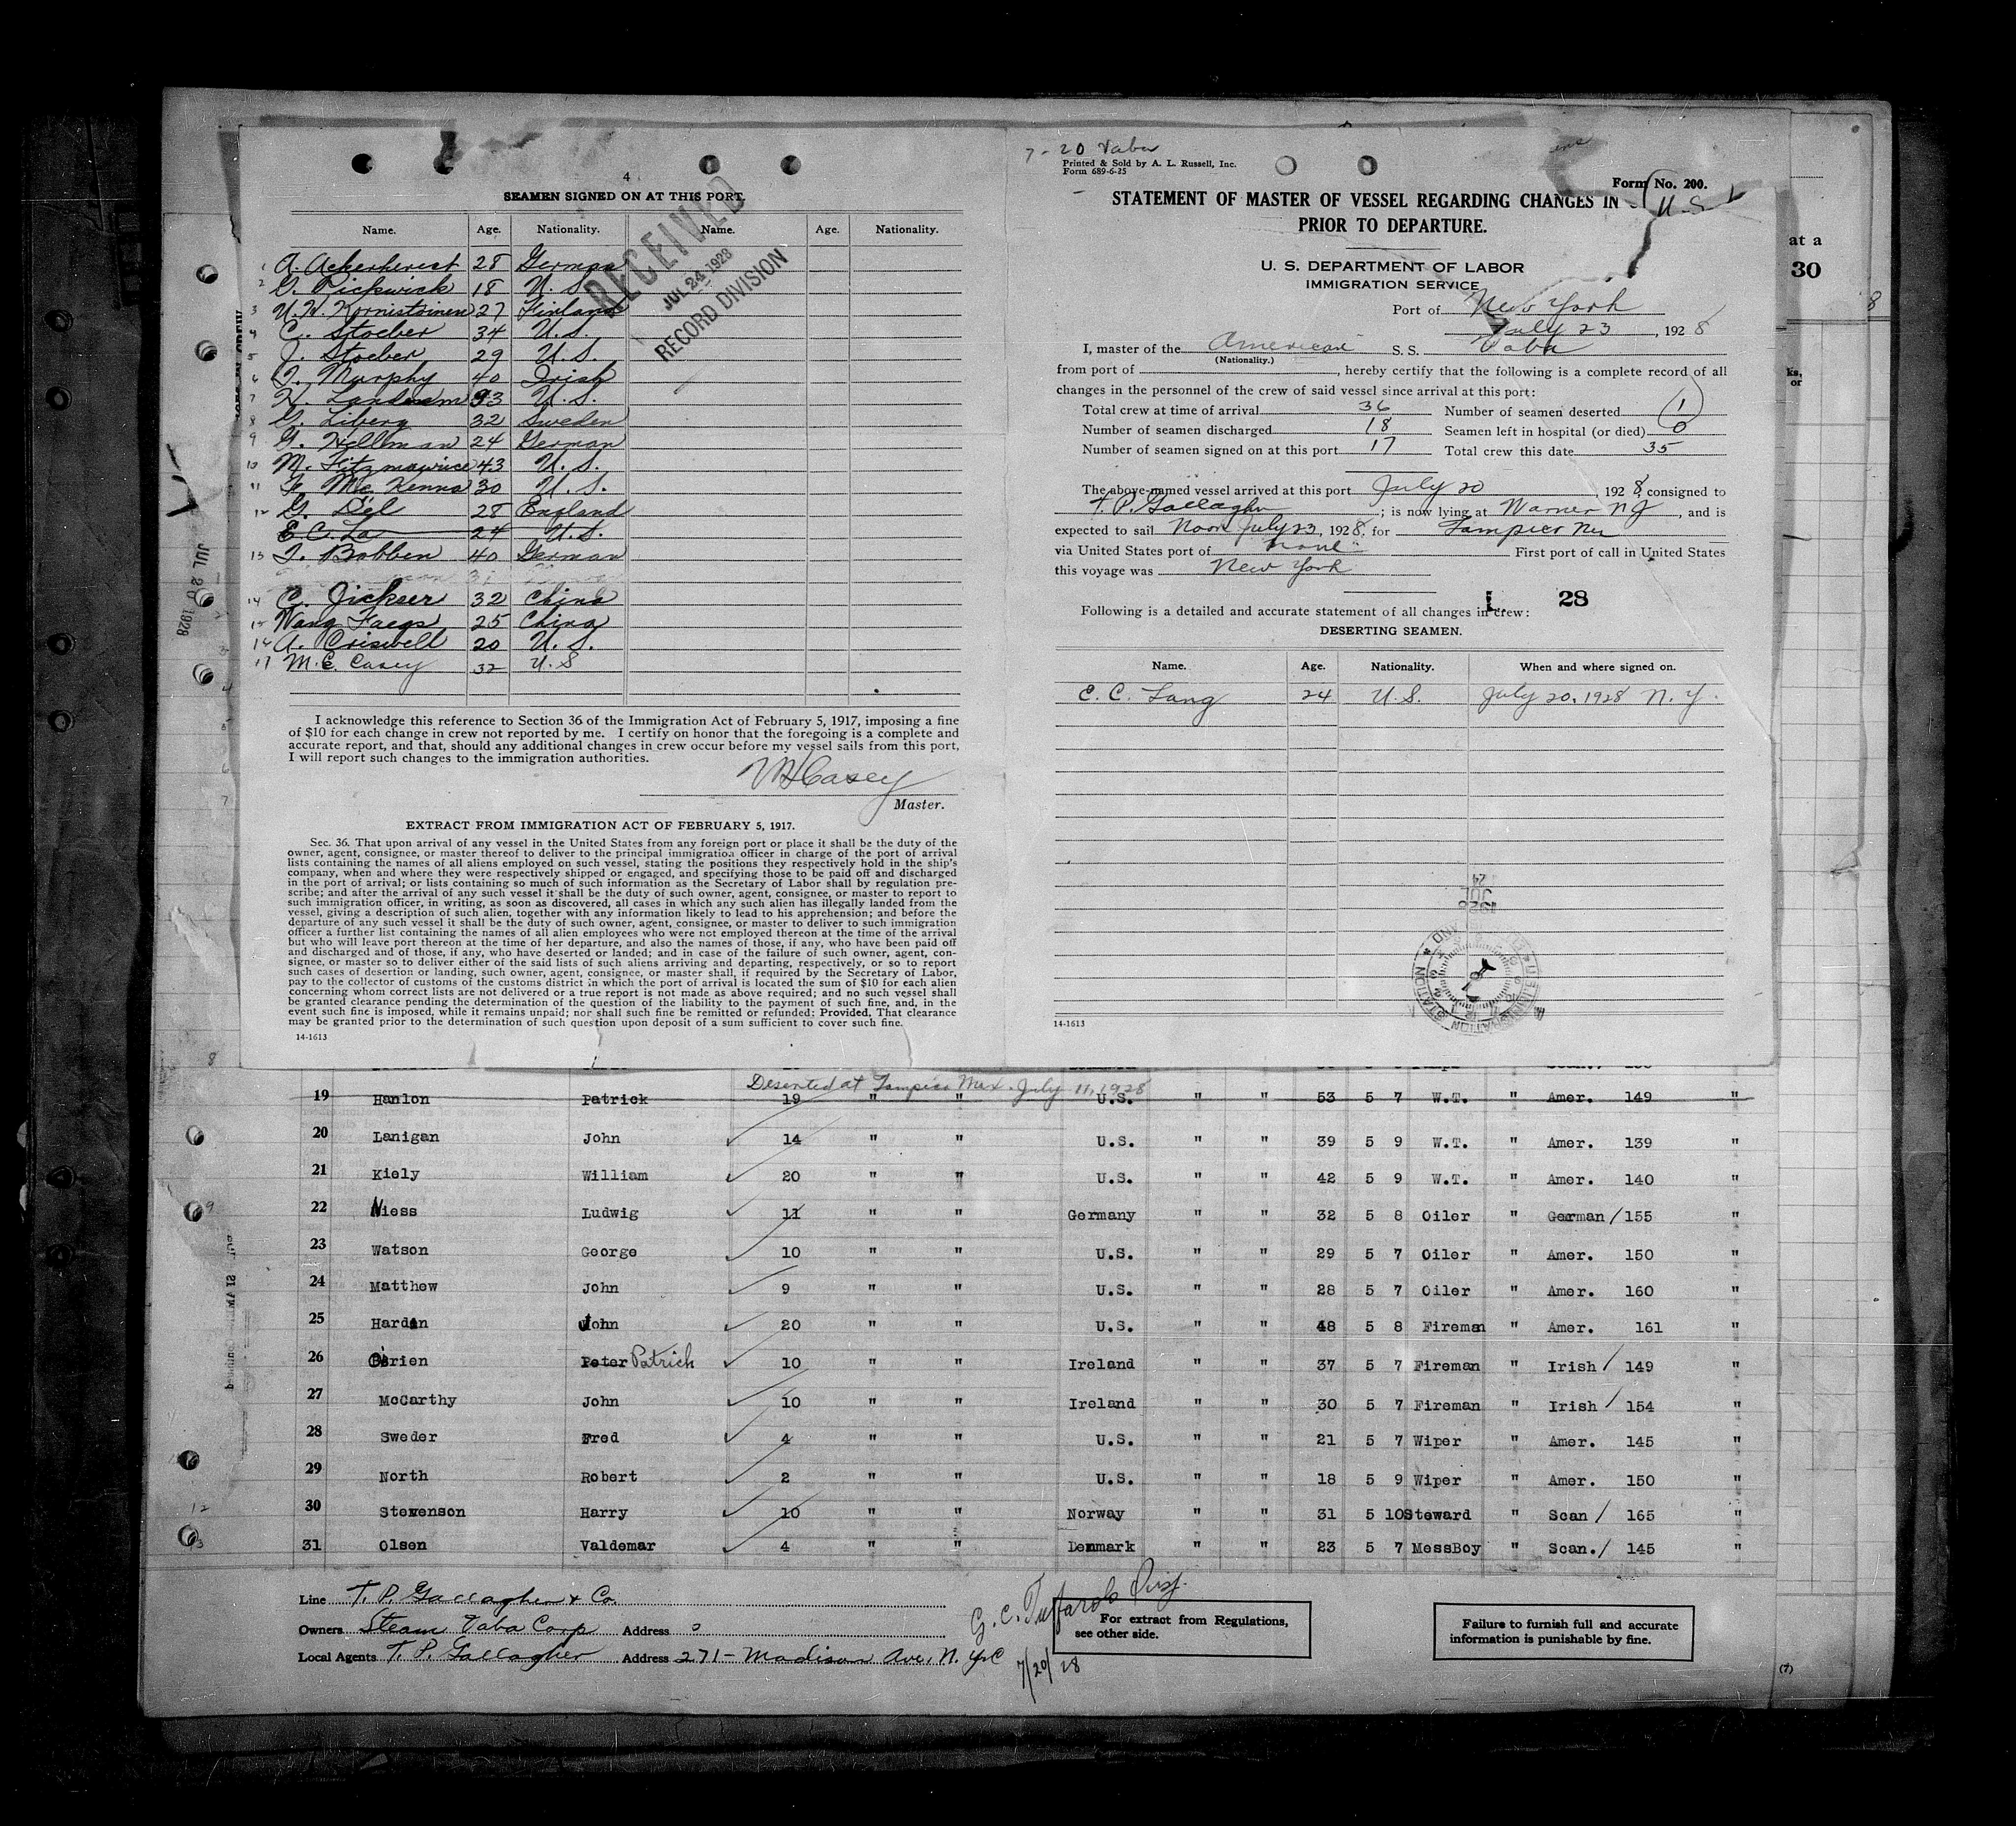 4
SEAMEN SIGNED ON AT THIS PORT.
Name. Age. Nationality. Name. Age. Nationality.
1 A. 28 German
2 G. Pickwick 18 U. S.
3 27 Finland
4 C. Stoeber 34 U.S.
5 J. Stoeber 29 U.S.
6 T. Murphy 40 Irish
7 U.S.
8 G. Liberg 32 Sweden
9 G. Hellman 24 German
10 M. Fitzmaurice 43 U. S.
11 F. McKenna 30 U. S.
12 G. Del 28 England
E C. La 24 U.S.
13 T. Bobben 40 German
14 C. Jickser 32 China
15 Wang Faegs 25 China
16 A. Criswell 20 U. S.
17 M.E. Casey 32 U.S
RECEIVED
JUL 24 1928
RECORD DIVISION
I acknowledge this reference to Section 36 of the Immigration Act of February 5, 1917, imposing a fine
of $10 for each change in crew not reported by me. I certify on honor that the foregoing is a complete and
accurate report, and that, should any additional changes in crew occur before my vessel sails from this port,
I will report such changes to the immigration authorities.
Casey
Master.
EXTRACT FROM IMMIGRATION ACT OF FEBRUARY 5, 1917.
Sec. 36. That upon arrival of any vessel in the United States from any foreign port or place it shall be the duty of the
owner, agent, consignee, or master thereof to deliver to the principal immigration officer in charge of the port of arrival
lists containing the names of all aliens employed on such vessel, stating the positions they respectively hold in the ship's
company, when and where they were respectively shipped or engaged, and specifying those to be paid off and discharged
in the port of arrival; or lists containing so much of such information as the Secretary of Labor shall by regulation pre-
scribe; and after the arrival of any such vessel it shall be the duty of such owner, agent, consignee, or master to report to
such immigration officer, in writing, as soon as discovered, all cases in which any such alien has illegally landed from the
vessel, giving a description of such alien, together with any information likely to lead to his apprehension; and before the
departure of any such vessel it shall be the duty of such owner, agent, consignee, or master to deliver to such immigration
officer a further list containing the names of all alien employees who were not employed thereon at the time of the arrival
but who will leave port thereon at the time of her departure, and also the names of those, if any, who have been paid off
and discharged and of those, if any, who have deserted or landed; and in case of the failure of such owner, agent, con-
signee, or master so to deliver either of the said lists of such aliens arriving and departing, respectively, or so to report
such cases of desertion or landing, such owner, agent, consignee, or master shall, if required by the Secretary of Labor,
pay to the collector of customs of the customs district in which the port of arrival is located the sum of $10 for each alien
concerning whom correct lists are not delivered or a true report is not made as above required; and no such vessel shall
be granted clearance pending the determination of the question of the liability to the payment of such fine, and, in the
event such fine is imposed, while it remains unpaid; nor shall such fine be remitted or refunded: Provided, That clearance
may be granted prior to the determination of such question upon deposit of a sum sufficient to cover such fine.
14-1613
7-20 Vaba
Printed & Sold by A. L. Russell, Inc.
Form 689-6-25
Form No. 200.
STATEMENT OF MASTER OF VESSEL REGARDING CHANGES IN
U.S.
PRIOR TO DEPARTURE.
U. S. DEPARTMENT OF LABOR
IMMIGRATION SERVICE
Port of New York
July 23, 1928
I, master of the American S. S. Vaba
(Nationality.)
from port of , hereby certify that the following is a complete record of all
changes in the personnel of the crew of said vessel since arrival at this port:
Total crew at time of arrival 36 Number of seamen deserted 1
Number of seamen discharged 18 Seamen left in hospital (or died) 0
Number of seamen signed on at this port 17 Total crew this date 35
The above-named vessel arrived at this port July 20, 1928, consigned to
T. P. Gallagher; is now lying at Warner NJ, and is
expected to sail Noon July 23, 1928, for Tampico Mx
via United States port of none First port of call in United States
this voyage was New York
L. 28
Following is a detailed and accurate statement of all changes in crew:
DESERTING SEAMEN.
Name. Age. Nationality. When and where signed on.
E. C. Lang 24 U.S. July 20, 1928 N. Y.
1928 JUL 24
14-1613
at a
30
ks, or
8
JUL 20 1928
Deserted at Tampico Mex. July 11, 1928
19 Hanlon Patrick 19 " " U.S. " " 53 5 7 W.T. " Amer. 149 "
20 Lanigan John 14 " " U.S. " " 39 5 9 W.T. " Amer. 139 "
21 Kiely William 20 " " U.S. " " 42 5 9 W.T. " Amer. 140 "
22 Niess Ludwig 11 " " Germany " " 32 5 8 Oiler " German / 155 "
23 Watson George 10 " " U.S. " " 29 5 7 Oiler " Amer. 150 "
24 Matthew John 9 " " U.S. " " 28 5 7 Oiler " Amer. 160 "
25 Hardin John 20 " " U.S. " " 48 5 8 Fireman " Amer. 161 "
26 O'Brien Peter Patrick 10 " " Ireland " " 37 5 7 Fireman " Irish / 149 "
27 McCarthy John 10 " " Ireland " " 30 5 7 Fireman " Irish / 154 "
28 Sweder Fred 4 " " U.S. " " 21 5 7 Wiper " Amer. 145 "
29 North Robert 2 " " U.S. " " 18 5 9 Wiper " Amer. 150 "
30 Stevenson Harry 10 " " Norway " " 31 5 10 Steward " Scan / 165 "
31 Olsen Valdemar 4 " " Denmark " " 23 5 7 MessBoy " Scan. / 145 "
Line T. P. Gallagher & Co.
Owners Steam Vaba Corp Address
Local Agents T. P. Gallagher Address 271- Madison Ave, N. Y. C
G. C.
7/20/28
For extract from Regulations,
see other side.
Failure to furnish full and accurate
information is punishable by fine.
(7)